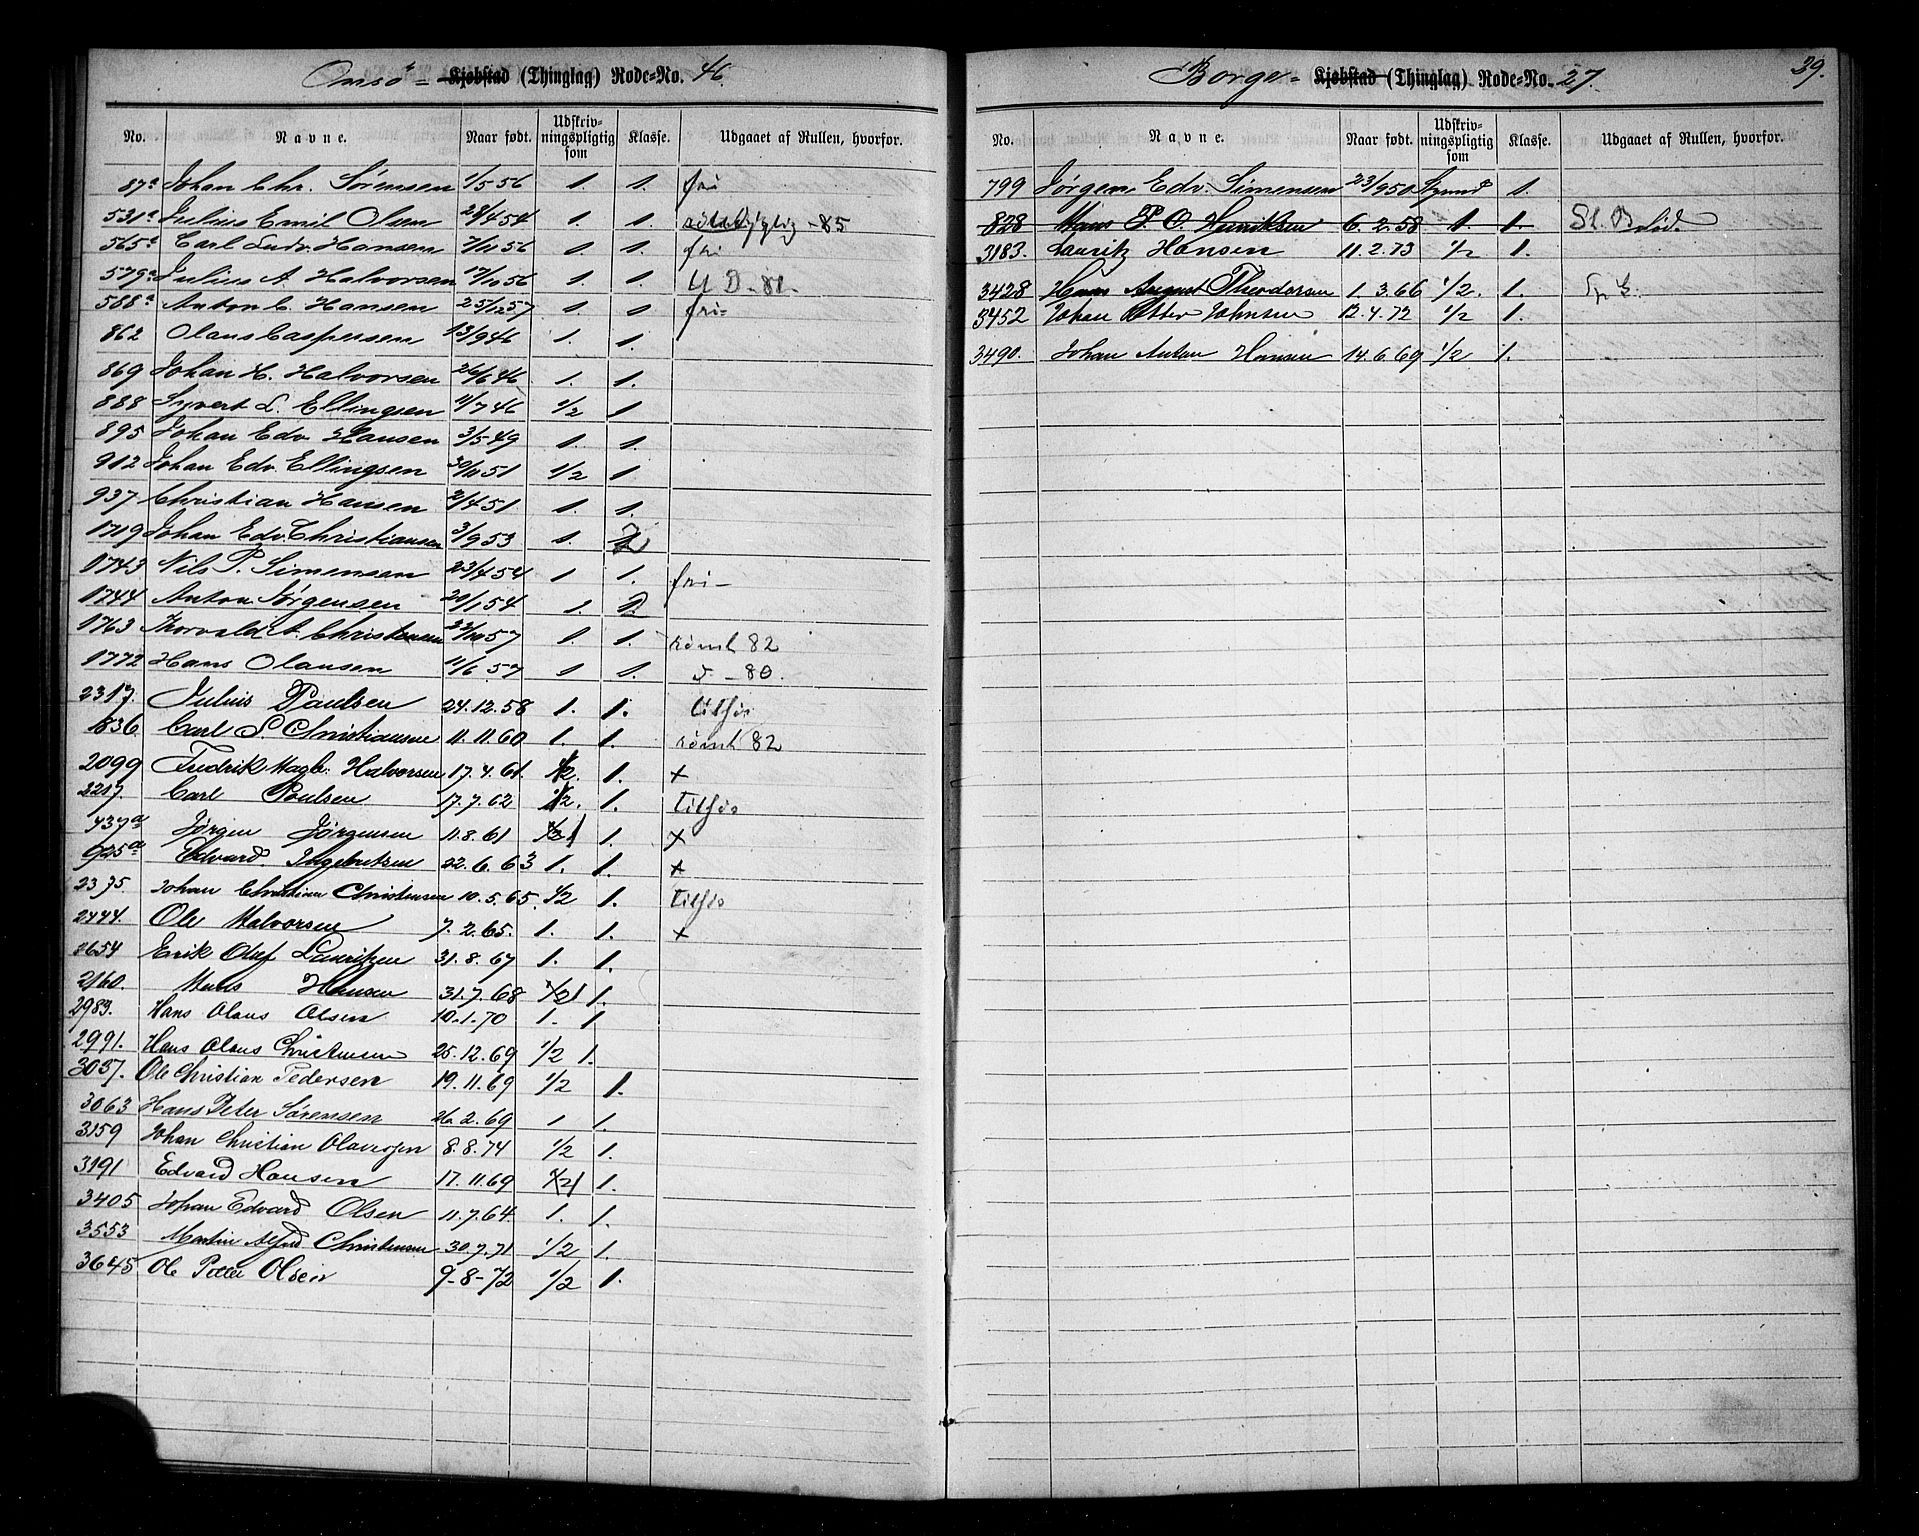 Onsø - Kjøbstad (Thinglag) Rode-No. 46.
No. Navne. Naar født. Udskrivningspligtig som Klasse. Udgaaet af Rullen, hvorfor.
87a Johan Chr. Sørensen 1/5 56 1. 1. fri
531a Julius Emil Olsen 28/4 54 1. 1. - 85
565a Carl Ludv. Hansen 7/11 56 1. 1. fri
579a Julius A. Halvorsen 17/10 56 1. 1. U D - 81.
588a Anton C. Hansen 25/12 57 1. 1. fri -
862 Olaus Caspersen 13/9 46 1. 1.
869 Johan H. Halvorsen 26/6 46 1. 1.
888 Syvert L. Ellingsen 11/7 46 1/2 1.
895 Johan Edv. Hansen 3/5 49 1. 1.
912 Johan Edv. Ellingsen 30/11 51 1/2 1.
937 Christian Hansen 2/4 51 1. 1.
1719 Johan Edv. Christiansen 3/9 53 1. 2
1743 Nils P. Simensen 23/4 54 1. 1. fri -
1744 Anton Jørgensen 20/1 54 1. 2.
1763 Thorvald A. Christensen 22/10 57 1. 1. rømt 82
1772 Hans Olausen 11/6 57 1. 1. d - 80.
2317. Julius Paulsen 24.12.58 1. 1. tilsjøs
1836 Carl S. Christiansen 11.11.60 1. 1. rømt 82
2099 Fredrik Magb. Halvorsen 17.4.61 1/2. 1. x
2217. Carl Poulsen 17.7.62 1/2. 1. tilsjøs
737a Jørgen Jørgensen 11.8.61 1/2 1 1. x
925a Edvard Ingebretsen 22.6.63 1. 1. x
2375. Johan Christian Christensen 10.5.65. 1/2 1. tilsjøs
2444. Ole Halvorsen 7.2.65. 1. 1. x
2654 Erik Olaf Lauritzen 31.8.67 1. 1.
2160. Hans Hansen 31.7.68 1/2 1 1.
2983. Hans Olaus Olsen 10.1.70 1. 1
2991. Hans Olaus Christensen 25.12.69 1/2 1.
3037. Ole Christian Pedersen 19.11.69 1/2 1.
3063 Hans Peter Sørensen 26.2.69 1 1.
3159 Johan Christian Olavesen 8.8.74 1/2 1.
3191 Edvard Hansen 17.11.69 1/2 1 1.
3405 Johan Edvard Olsen 11.7.64. 1. 1.
3553 Martin Alfred Christensen 30.7.71 1/2 1.
3645 Ole Petter Olsen 9-8-72 1/2 1.
Borge - Kjøbstad (Thinglag) Rode-No. 27. 29.
No. Navne. Naar født. Udskrivningspligtig som Klasse. Udgaaet af Rullen, hvorfor.
799 Jørgen Edv. Simensen 23/9 50 1.
828 Hans P. O. Henriksen 6.2.58 1. 1.
3183. Lauritz Hansen 11.2.73 1/2 1.
3428 Hans August Theodorsen 1.3.66 1/2. 1.
3452 Johan Otter Johnsen 12.4.72 1/2 1.
3490. Johan Anton Hansen 14.6.69 1/2 1.